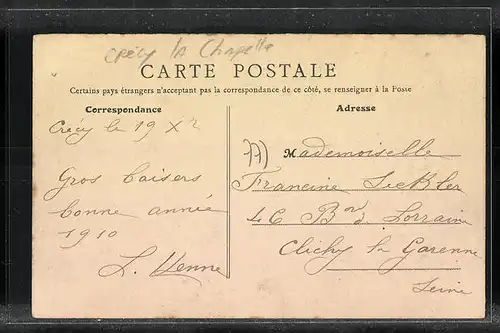 Crécy la Chapelle
CARTE POSTALE
Certains pays étrangers n'acceptent pas la correspondance de ce côté, se renseigner à la Poste
Correspondance
Adresse
Crécy le 19 X
Gros baisers
bonne année
1910
77)
Mademoiselle
Francine
Lorraine
Clichy la Garenne
Seine